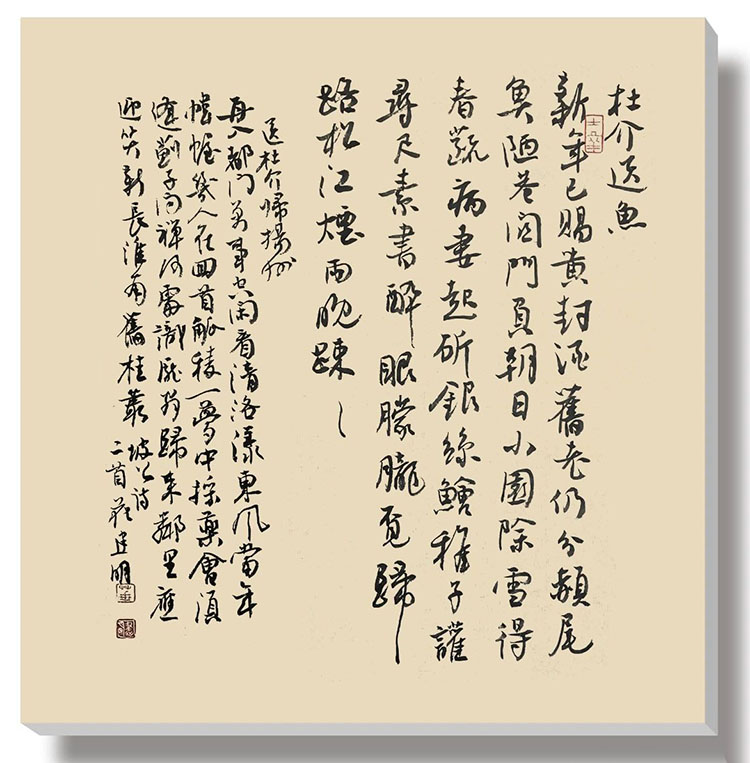 杜介送魚
新年已賜黄封酒舊老仍分赬尾
魚陋巷関門負朝日小園除雪得
春蔬病妻起斫銀絲鱠稚子讙
尋尺素書醉眼朦朧覓歸
路松江煙雨晚疎〻
送杜介歸揚州
再入都門萬事空閑看清洛漾東風當年
帷幄幾人在回首觚稜一夢中採藥會須
逢薊子問禪何處識龐翁歸來鄰里應
迎笑新長淮南舊桂叢 坡公詩
二首 建明